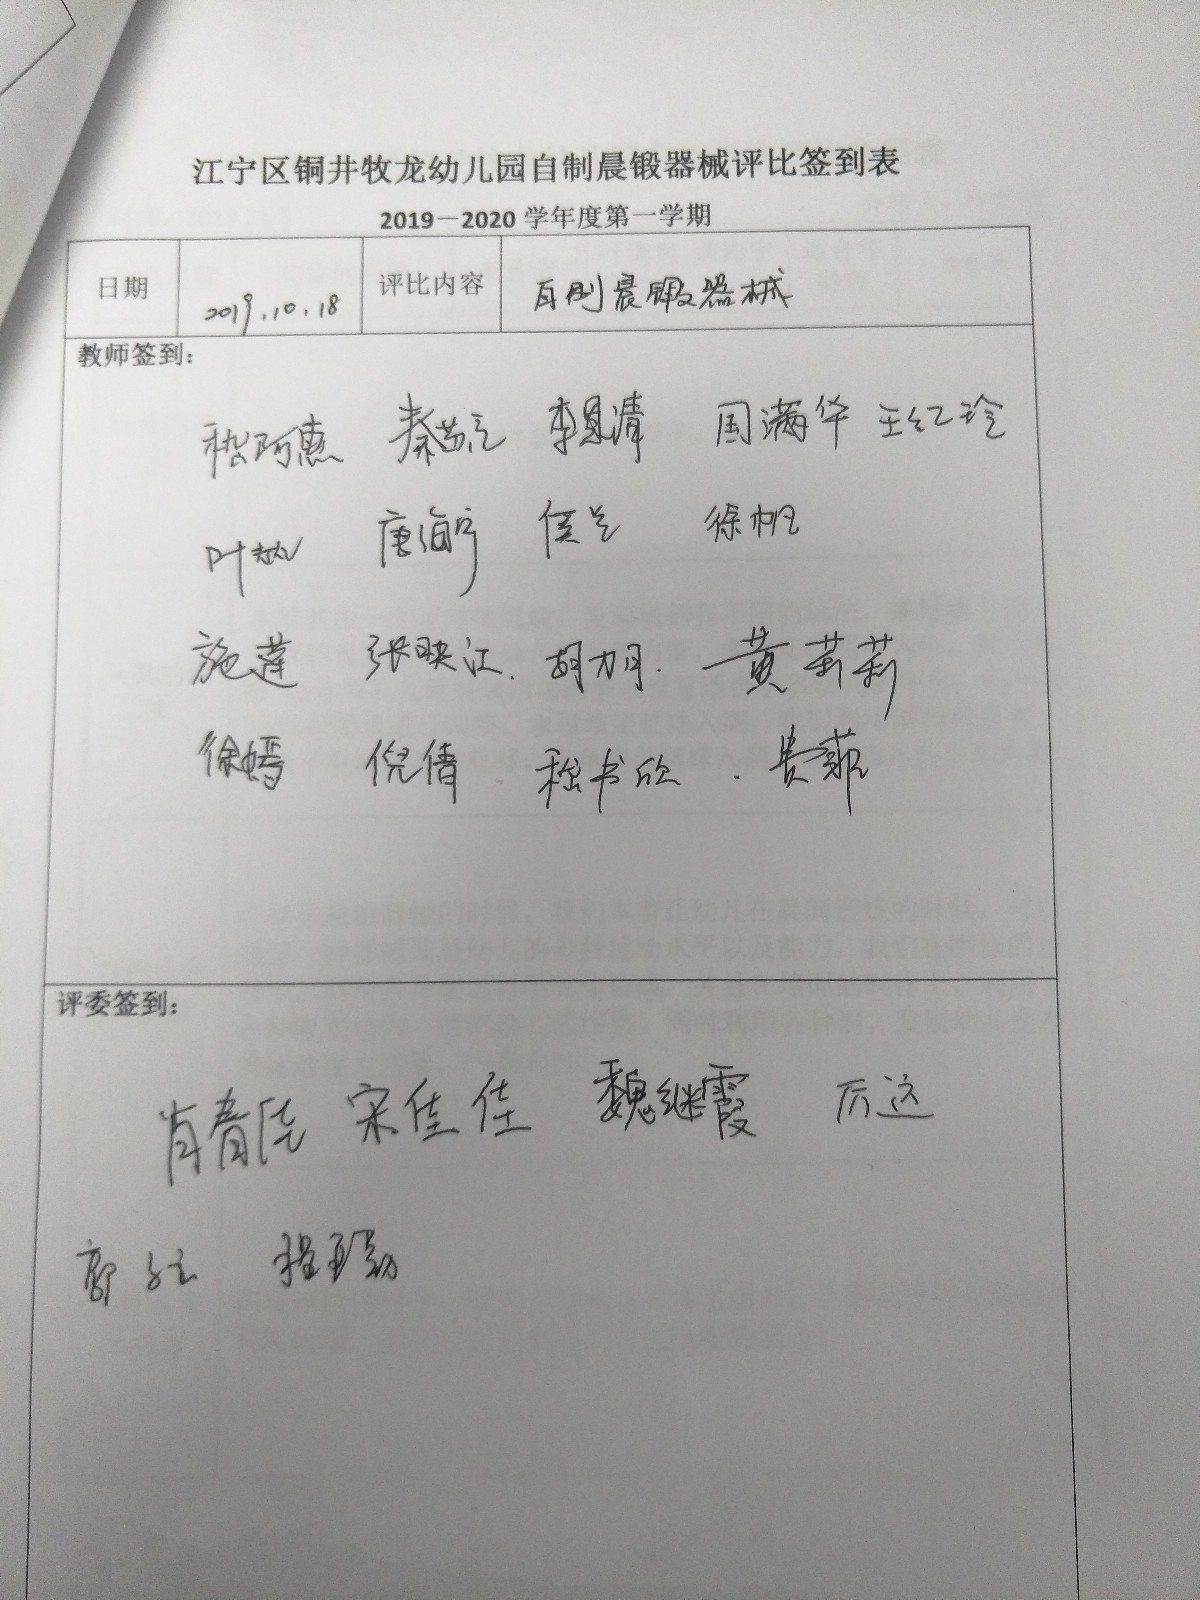 江宁区铜井牧龙幼儿园自制晨锻器械评比签到表
2019－2020 学年度第一学期
日期 2019.10.18 评比内容 自制晨锻器械
教师签到：
嵇阿惠 秦 李恩清 周满华 王红玲
叶 唐海宁 侯兰 徐帆
施莲 张映江 胡明月 黄莉莉
徐嫣 倪倩 嵇书欣 贵菲
评委签到：
肖春花 宋佳佳 魏继霞 厉这
郭 程